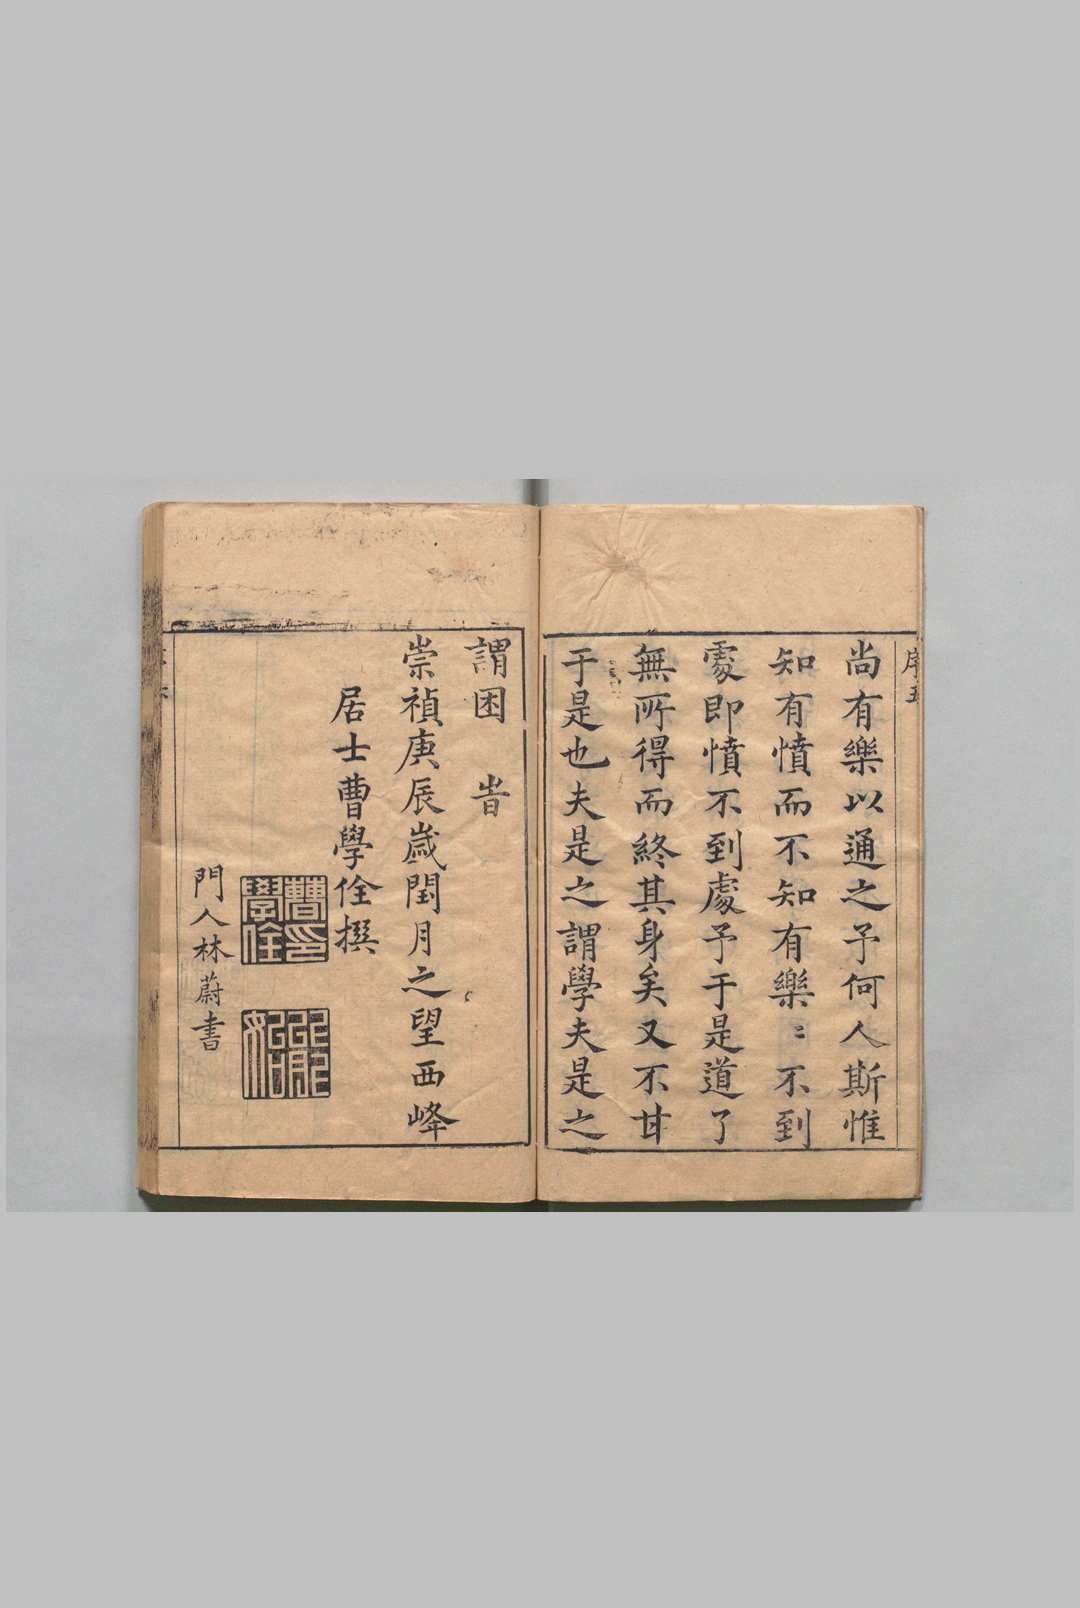 序五
尚有樂以通之予何人斯惟
知有憤而不知有樂〻不到
處即憤不到處予于是道了
無所得而終其身矣又不甘
于是也夫是之謂學夫是之
謂困 旹
崇禎庚辰歲閏月之望西峰
居士曹學佺撰
曹學佺印
門人林蔚書